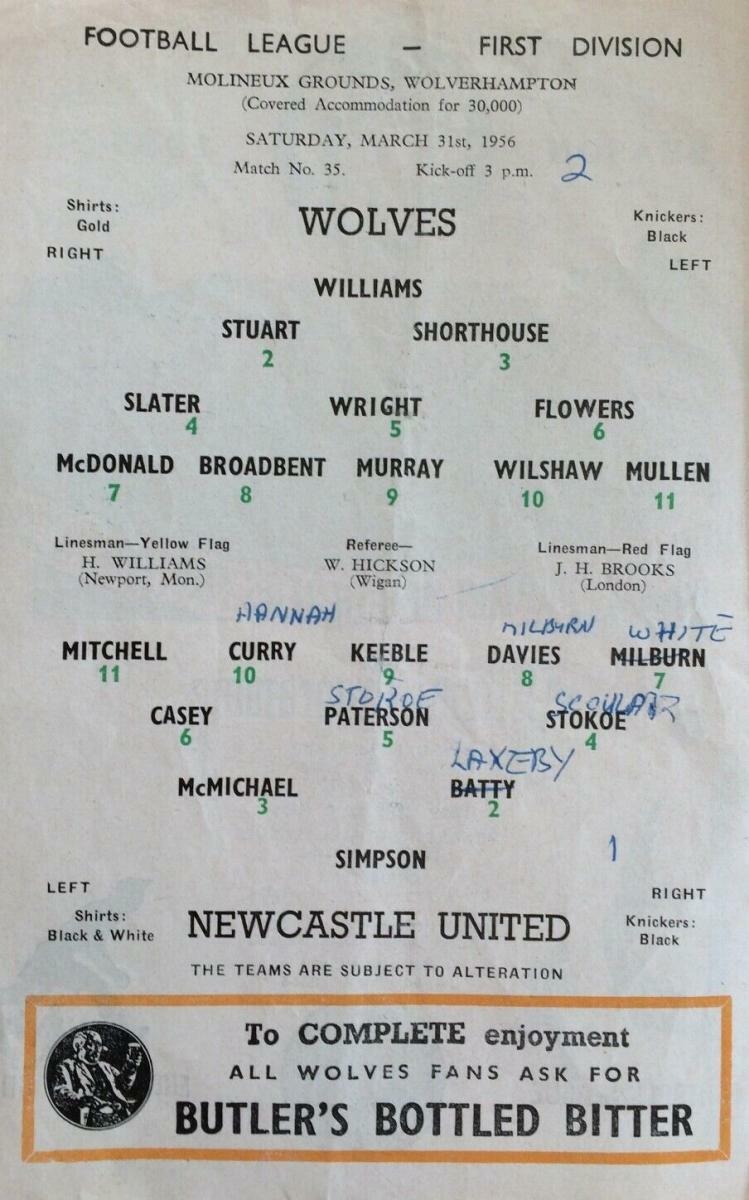 FOOTBALL LEAGUE — FIRST DIVISION
MOLINEUX GROUNDS, WOLVERHAMPTON
(Covered Accommodation for 30,000)
SATURDAY, MARCH 31st, 1956
Match No. 35. Kick-off 3 p.m. 2
Shirts: Gold
WOLVES
Knickers: Black
RIGHT
LEFT
WILLIAMS
STUART SHORTHOUSE
2 3
SLATER WRIGHT FLOWERS
4 5 6
McDONALD BROADBENT MURRAY WILSHAW MULLEN
7 8 9 10 11
Linesman—Yellow Flag Referee— Linesman—Red Flag
H. WILLIAMS W. HICKSON J. H. BROOKS
(Newport, Mon.) (Wigan) (London)
HANNAH MILBURN WHITE
MITCHELL CURRY KEEBLE DAVIES MILBURN
11 10 9 8 7
STOKOE SCOULAR
CASEY PATERSON STOKOE
6 5 4
LAXEBY
McMICHAEL BATTY
3 2
SIMPSON 1
LEFT
RIGHT
Shirts: Black & White
NEWCASTLE UNITED
Knickers: Black
THE TEAMS ARE SUBJECT TO ALTERATION
To COMPLETE enjoyment
ALL WOLVES FANS ASK FOR
BUTLER'S BOTTLED BITTER